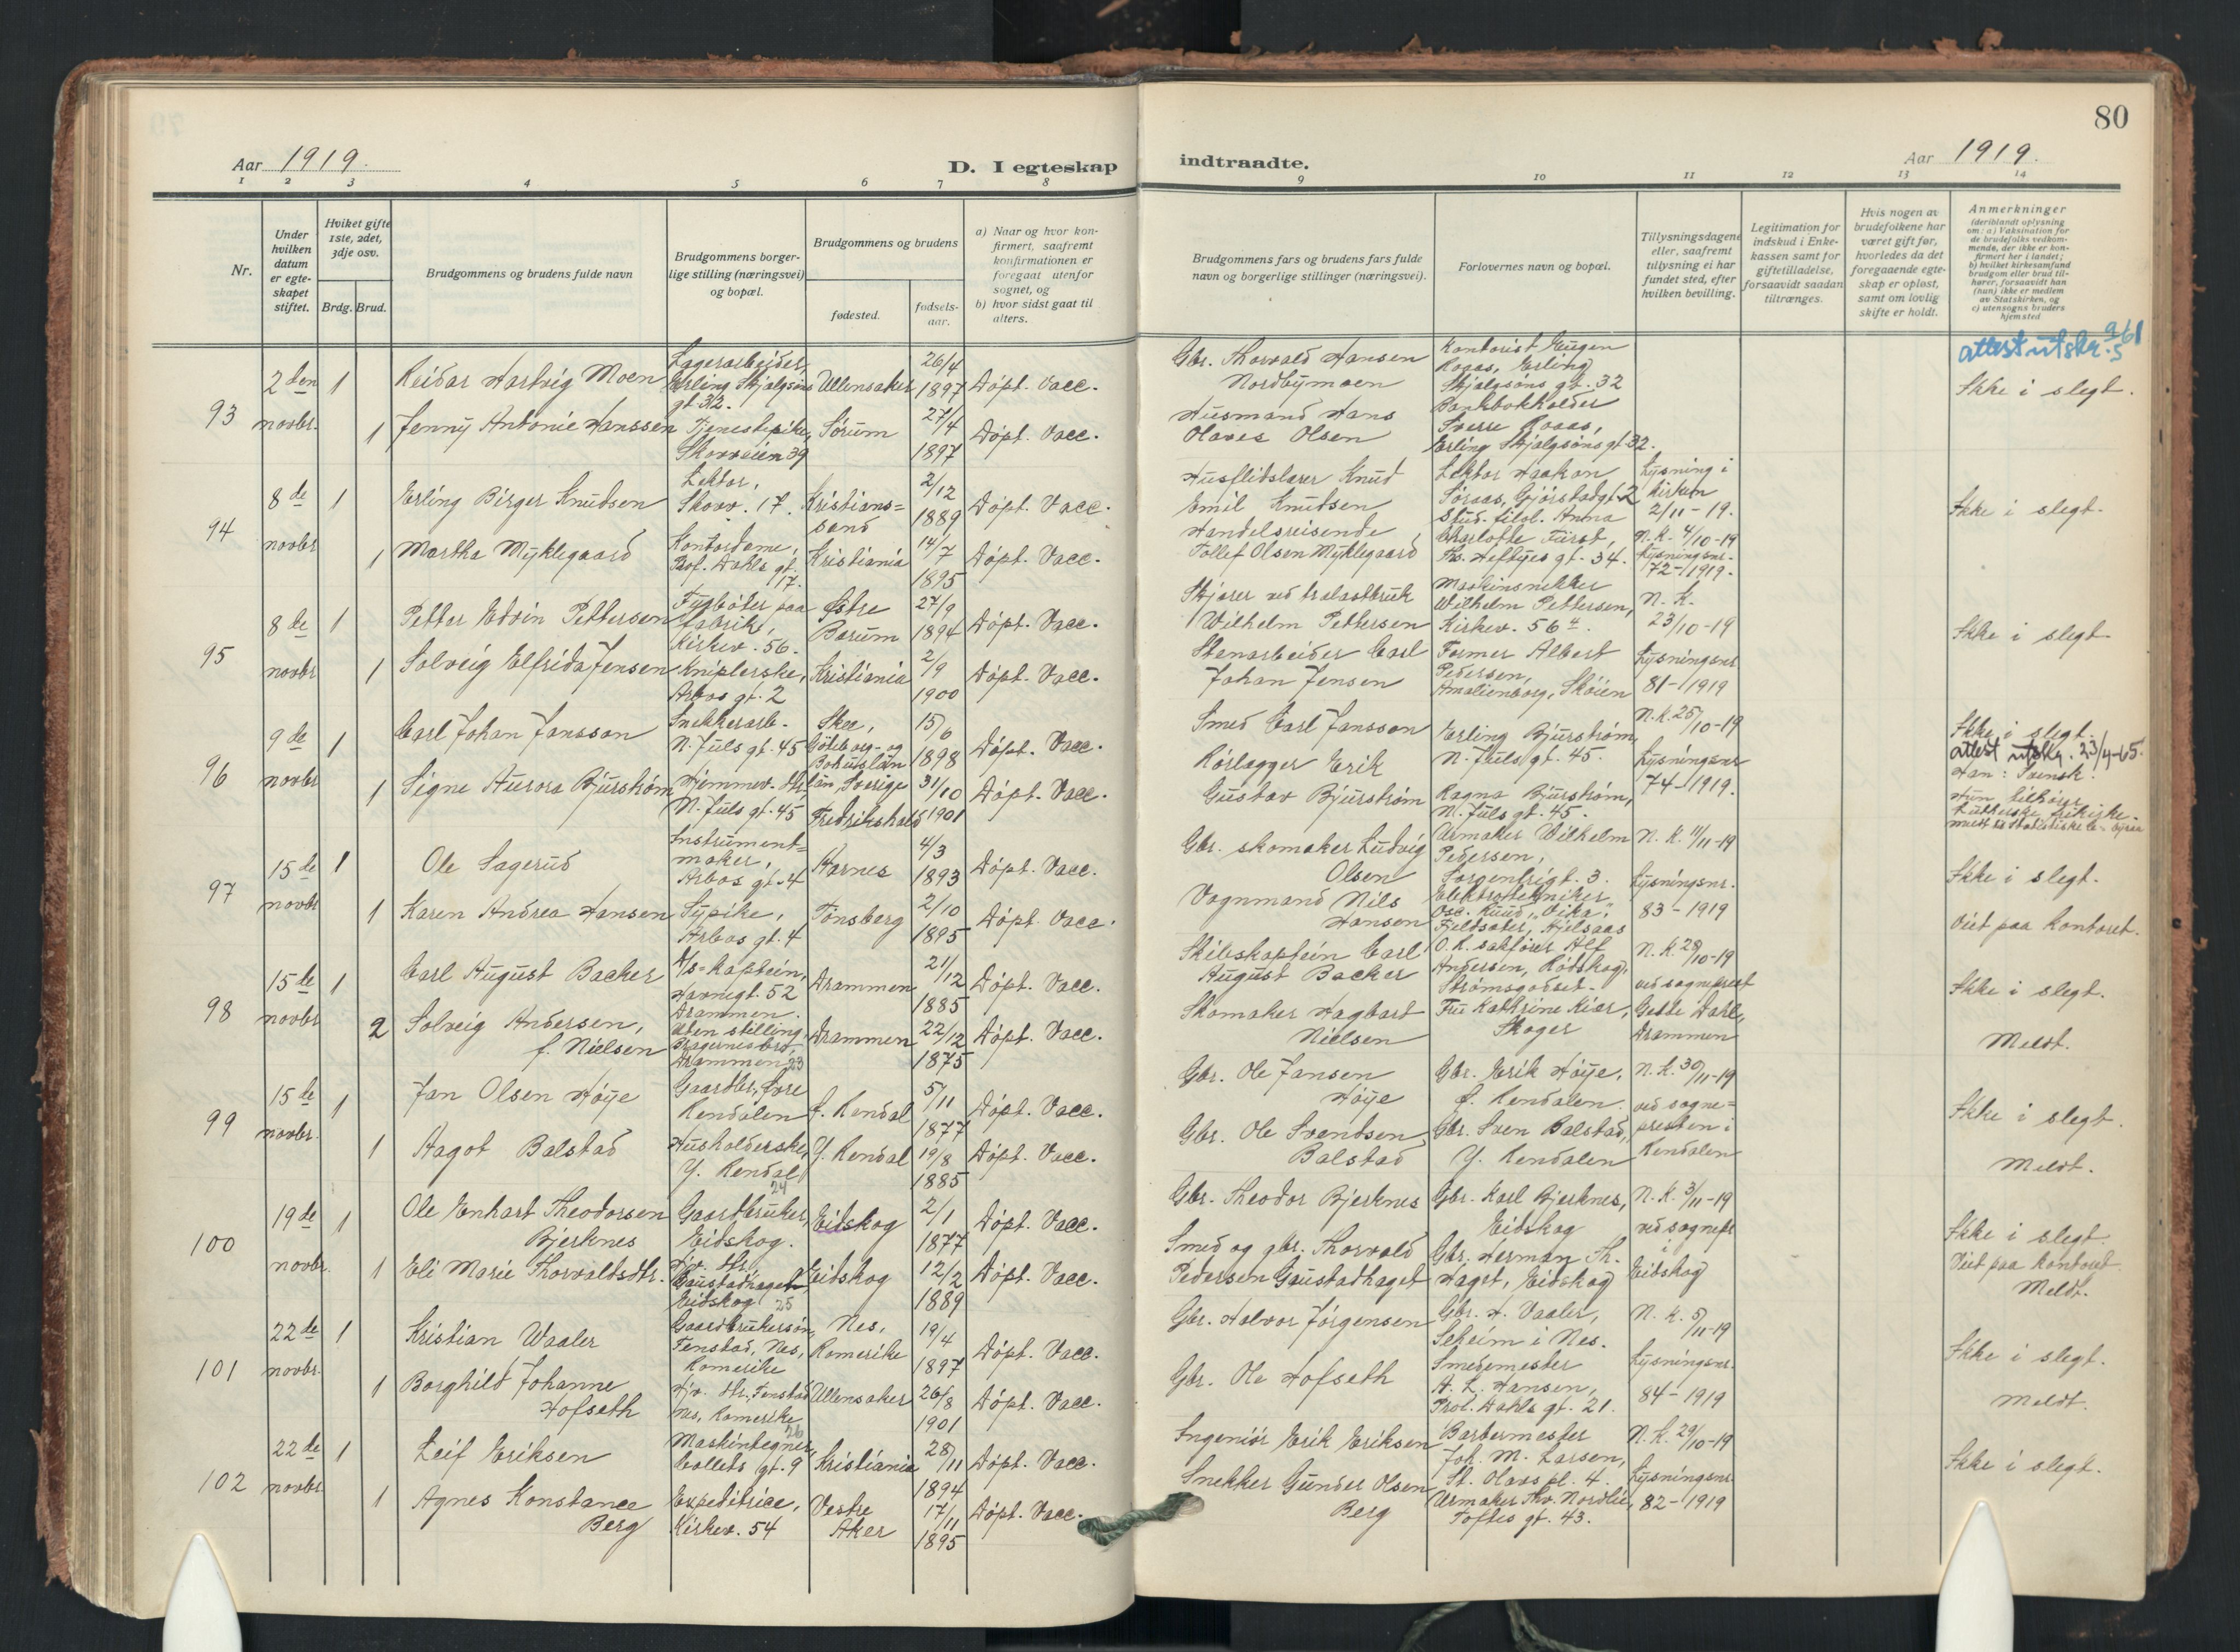 80
Aar 1919.
D. I egteskap
indtraadte.
Aar 1919.
1 2 3 4 5 6 7 8 9 10 11 12 13 14
Nr.
Under hvilken datum er egteskapet stiftet.
Hvilket gifte 1ste, 2det, 3dje osv.
Brdg. Brud.
Brudgommens og brudens fulde navn
Brudgommens borgerlige stilling (næringsvei) og bopæl.
Brudgommens og brudens
fødested.
fødselsaar.
a) Naar og hvor konfirmert, saafremt konfirmationen er foregaat utenfor sognet, og
b) hvor sidst gaat til alters.
Brudgommens fars og brudens fars fulde navn og borgerlige stillinger (næringsvei).
Forlovernes navn og bopæl.
Tillysningsdagene eller, saafremt tillysning ei har fundet sted, efter hvilken bevilling.
Legitimation for indskud i Enkekassen samt for giftetilladelse, forsaavidt saadan tiltrænges.
Hvis nogen av brudefolkene har været gift før, hvorledes da det foregaaende egteskap er opløst, samt om lovlig skifte er holdt.
Anmerkninger
(deriblandt oplysning om: a) Vaksination for de brudefolks vedkommende, der ikke er konfirmert her i landet;
b) hvilket kirkesamfund brudgom eller brud tilhører, forsaavidt han (hun) ikke er medlem av Statskirken, og
c) utensogns bruders hjemsted
93
2den novbr.
1
Reidar Hartvig Moen
Lagerarbeider, Erling Skjalgsøns gt. 32.
Ullensaker
26/4 1897
Døpt. Vacc.
Gbr. Thorvald Hansen Nordbymoen
Kontorist Eugen Roaas, Erling Skjalgsøns gt. 32
attest utskr. 9/5 61
Ikke i slegt.
1
Jenny Antonie Hanssen
Tjenestepike, Skovveien 39
Sørum
27/4 1897
Døpt. Vacc.
Husmand Hans Olaves Olsen
Bankbokholder Sverre Roaas, Erling Skjalgsøns gt. 32.
94
8de novbr
1
Erling Birger Knudsen
Lektor, Skovv. 17.
Kristianssand
2/12 1889
Døpt. Vacc.
Husflidslærer Knud Emil Knudsen
Lektor Haakon Søraas, Gjørstadgt. 2
Lysning i kirken 2/11-19.
Ikke i slegt.
1
Martha Myklegaard
Kontordame, Prof. Dahls gt. 17.
Kristiania
14/7 1895
Døpt. Vacc.
Handelsreisende Tollef Olsen Myklegaard
Stud. filol. Anna Charlotte Fürst, Th. Heftyes gt. 34.
N.K. 4/10-19
Lysningsnr. 72-1919.
95
8de novbr
1
Petter Edvin Pettersen
Fyrbøter paa fabrik, Kirkev. 56.
Østre Bærum
27/9 1894
Døpt. Vacc.
Skjærer ved trelastbruk Wilhelm Pettersen
Maskinsnekker Wilhelm Pettersen, Kirkev. 56 4.
N.K. 23/10-19
Ikke i slegt
1
Solveig Elfrida Jensen
Kniplerske, Arbos gt. 2
Kristiania
2/9 1900
Døpt. Vacc.
Stenarbeider Carl Johan Jensen
Former Albert Pedersen, Amalienborg, Skøien
Lysningsnr 81-1919
96
9de novbr
1
Carl Johan Jansson
Snekkerarb. N. Juls gt. 45
Skee, Göteborg- og Bohuslän län, Sverige
15/6 1898
Døpt. Vacc.
Smed Carl Jansson
Erling Bjurstrøm, N. Juls gt. 45.
N.K. 25/10-19
Ikke i slegt.
attest utskr. 23/4-65.
Han: Svensk.
1
Signe Aurora Bjurstrøm
Hjemmev. dtr., N. Juls gt. 45
Fredrikshald
31/10 1901
Døpt. Vacc.
Rørlægger Erik Gustav Bjurstrøm
Ragna Bjurstrøm, N. Juls gt. 45.
Lysningsnr 74-1919.
Hun tilhører Lutherske frikirke.
97
15de novbr
1
Ole Sagerud
Instrumentmaker, Arbos gt. 4
Aarnes
4/3 1893
Døpt. Vacc.
Gbr. skomaker Ludvig Olsen
Urmaker Wilhelm Pedersen, Sorgenfrigt. 3.
N.K. 11/11-19
Ikke i slegt.
1
Karen Andrea Hansen
Sypike, Arbos gt. 4
Tønsberg
2/10 1895
Døpt. Vacc.
Vognmand Nils Hansen
Elektrotekniker Osc. Ruud, "Vika", Fjeldsæter, Hjelsaas
Lysningsnr. 83-1919
Viet paa kontoret.
98
15de novbr
1
Carl August Backer
D/s-Kaptein, Havnegt. 52 Drammen.
Drammen
21/12 1885
Døpt. Vacc.
Skibskaptein Carl August Backer
O.R. sakfører Alf Andersen, Rødskog, Strømsgodset.
N.K. 28/10-19
Ikke i slegt.
2
Solveig Andersen, f. Nielsen
Uten stilling, Bragernesbro, Drammen 23
Drammen
22/12 1875
Døpt. Vacc.
Skomaker Hagbart Nielsen
Fru Kathrine Kiær, Skoger
ved sogneprest Gette Dahl, Drammen
Meldt.
99
15de novbr.
1
Jan Olsen Høije
Gaardbr., Øvre Rendalen
Ø. Rendal
5/11 1877
Døpt. Vacc.
Gbr. Ole Jansen Høije
Gbr. Erik Høije, Ø. Rendalen.
N.K. 30/11-19
Ikke i slegt.
1
Aagot Balstad
Husholderske, Y. Rendal 24
Y. Rendal
19/8 1885
Døpt. Vacc.
Gbr. Ole Svendsen Balstad
Gbr. Sven Balstad, Y. Rendalen
ved sognepresten i Rendalen
Meldt.
100
19de novbr.
1
Ole Enhart Theodorsen Bjerknes
Gaardbruker, Eidskog.
Eidskog
2/1 1877
Døpt. Vacc.
Gbr. Theodor Bjerknes
Gbr. Karl Bjerknes, Eidskog
N.K. 3/11-19
Ikke i slegt.
1
Eli Marie Thorvaldsdtr.
Hjv. dtr., Gaustadhaget, Eidskog 25
Eidskog
12/2 1889
Døpt. Vacc.
Smed og gbr. Thorvald Pedersen Gaustadhaget
Gbr. Herman Th. Haget, Eidskog
ved sognepr i Eidskog
Viet paa kontoret.
Meldt.
101
22de novbr.
1
Kristian Waaler
Gaardbrukersøn, Fenstad, Nes, Romerike
Nes, Romerike
19/4 1897
Døpt. Vacc.
Gbr. Halvor Jørgensen
Gbr. H. Vaaler, Seheim i Nes.
N.K. 5/11-19
Ikke i slegt.
1
Borghild Johanne Hofseth
Hjv. dtr., Fenstad Nes, Romerike 26
Ullensaker
26/8 1901
Døpt. Vacc.
Gbr. Ole Hofseth
Smedemester A. L. Hansen, Prof. Dahls gt. 21.
Lysningsnr. 84-1919
Meldt.
102
22de novbr.
1
Leif Eriksen
Maskintegner, Colletts gt. 9
Kristiania
28/11 1894
Døpt. Vacc.
Ingeniør Erik Eriksen
Barbermester Joh. M. Larsen, St. Olavs pl. 4.
N.K. 29/10-19
Ikke i slegt.
1
Agnes Konstance Berg
Expeditrice, Kirkev. 54
Vestre Aker
17/11 1895
Døpt. Vacc.
Snekker Gunder Olsen Berg
Urmaker Thv. Nordlie, Toftes gt. 43.
Lysningsnr 82-1919